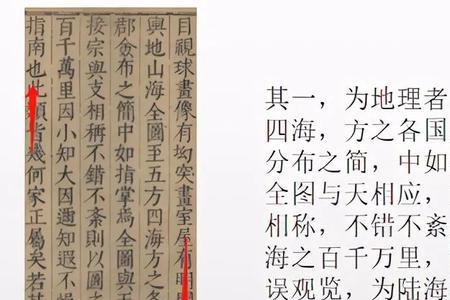 目視球畫像有坳突畫室屋有明
輿地山海全圖至五方四海方之各
郡僉布之簡中如指掌焉全圖與天
接宗與支相稱不錯不紊則以圖之
百千萬里因小知大因邇知遐不
指南也此類皆幾何家正屬矣若其
其一，为地理者
四海，方之各国
分布之简，中如
全图与天相应，
相称，不错不紊
海之百千万里，
误观览，为陆海